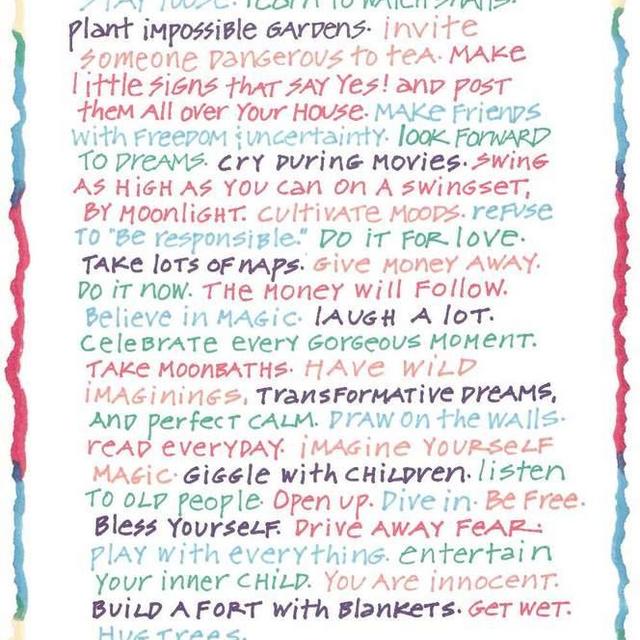 STAY loose. learn to WATCH SNAILS.
plant impossible GARDENS. invite
someone DANGEROUS to teA. MAKE
little signs that SAY Yes! and post
them All over Your House. MAKE Friends
with Freedom & uncertainty. look FORWARD
TO DreAMS. Cry During Movies. Swing
AS HIGH AS YOU CAN ON A SWINGSET,
BY MOONLIGHT. CULTIVATE MOODS. refuse
TO "Be responsible." DO IT FOR love.
TAKE lOTS OF NAPS. Give Money AWAY.
DO it NOW. THE Money will Follow.
Believe in MAGIC. lAUGH A lOT.
CeleBRATE every GORGEOUS MOMENT.
TAKE MOONBATHS. HAVE WILD
iMAGININGS, TRANSFORMATIVE DreAMS,
AND perfecT CALM. DRAW ON the WAlls.
reAD everyDAY. iMAGINE YOURSELF
MAGIC. GiGGle with CHILDREN. listen
TO OLD people. Open up. Dive in. Be Free.
Bless YOURSELF. Drive AWAY FeAR.
plAY with everything. entertain
YOUR inner CHILD. YOU Are innocent.
BUILD A FORT with BLANKETS. GeT WeT.
HUG Trees.